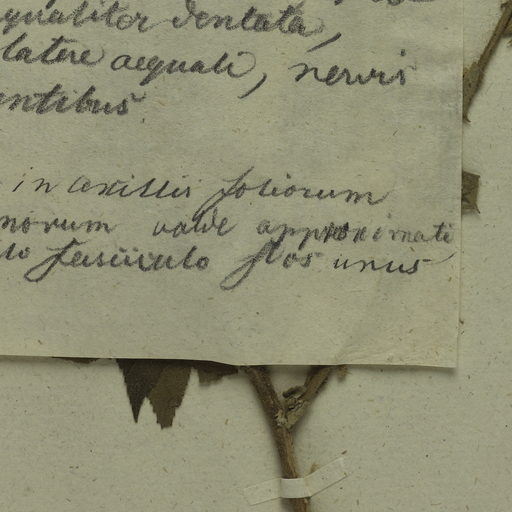 qualiter dentata,
latere aequali, nervis
entibus
in axillis foliorum
norum valde approximati
lo fasciculo flos unus